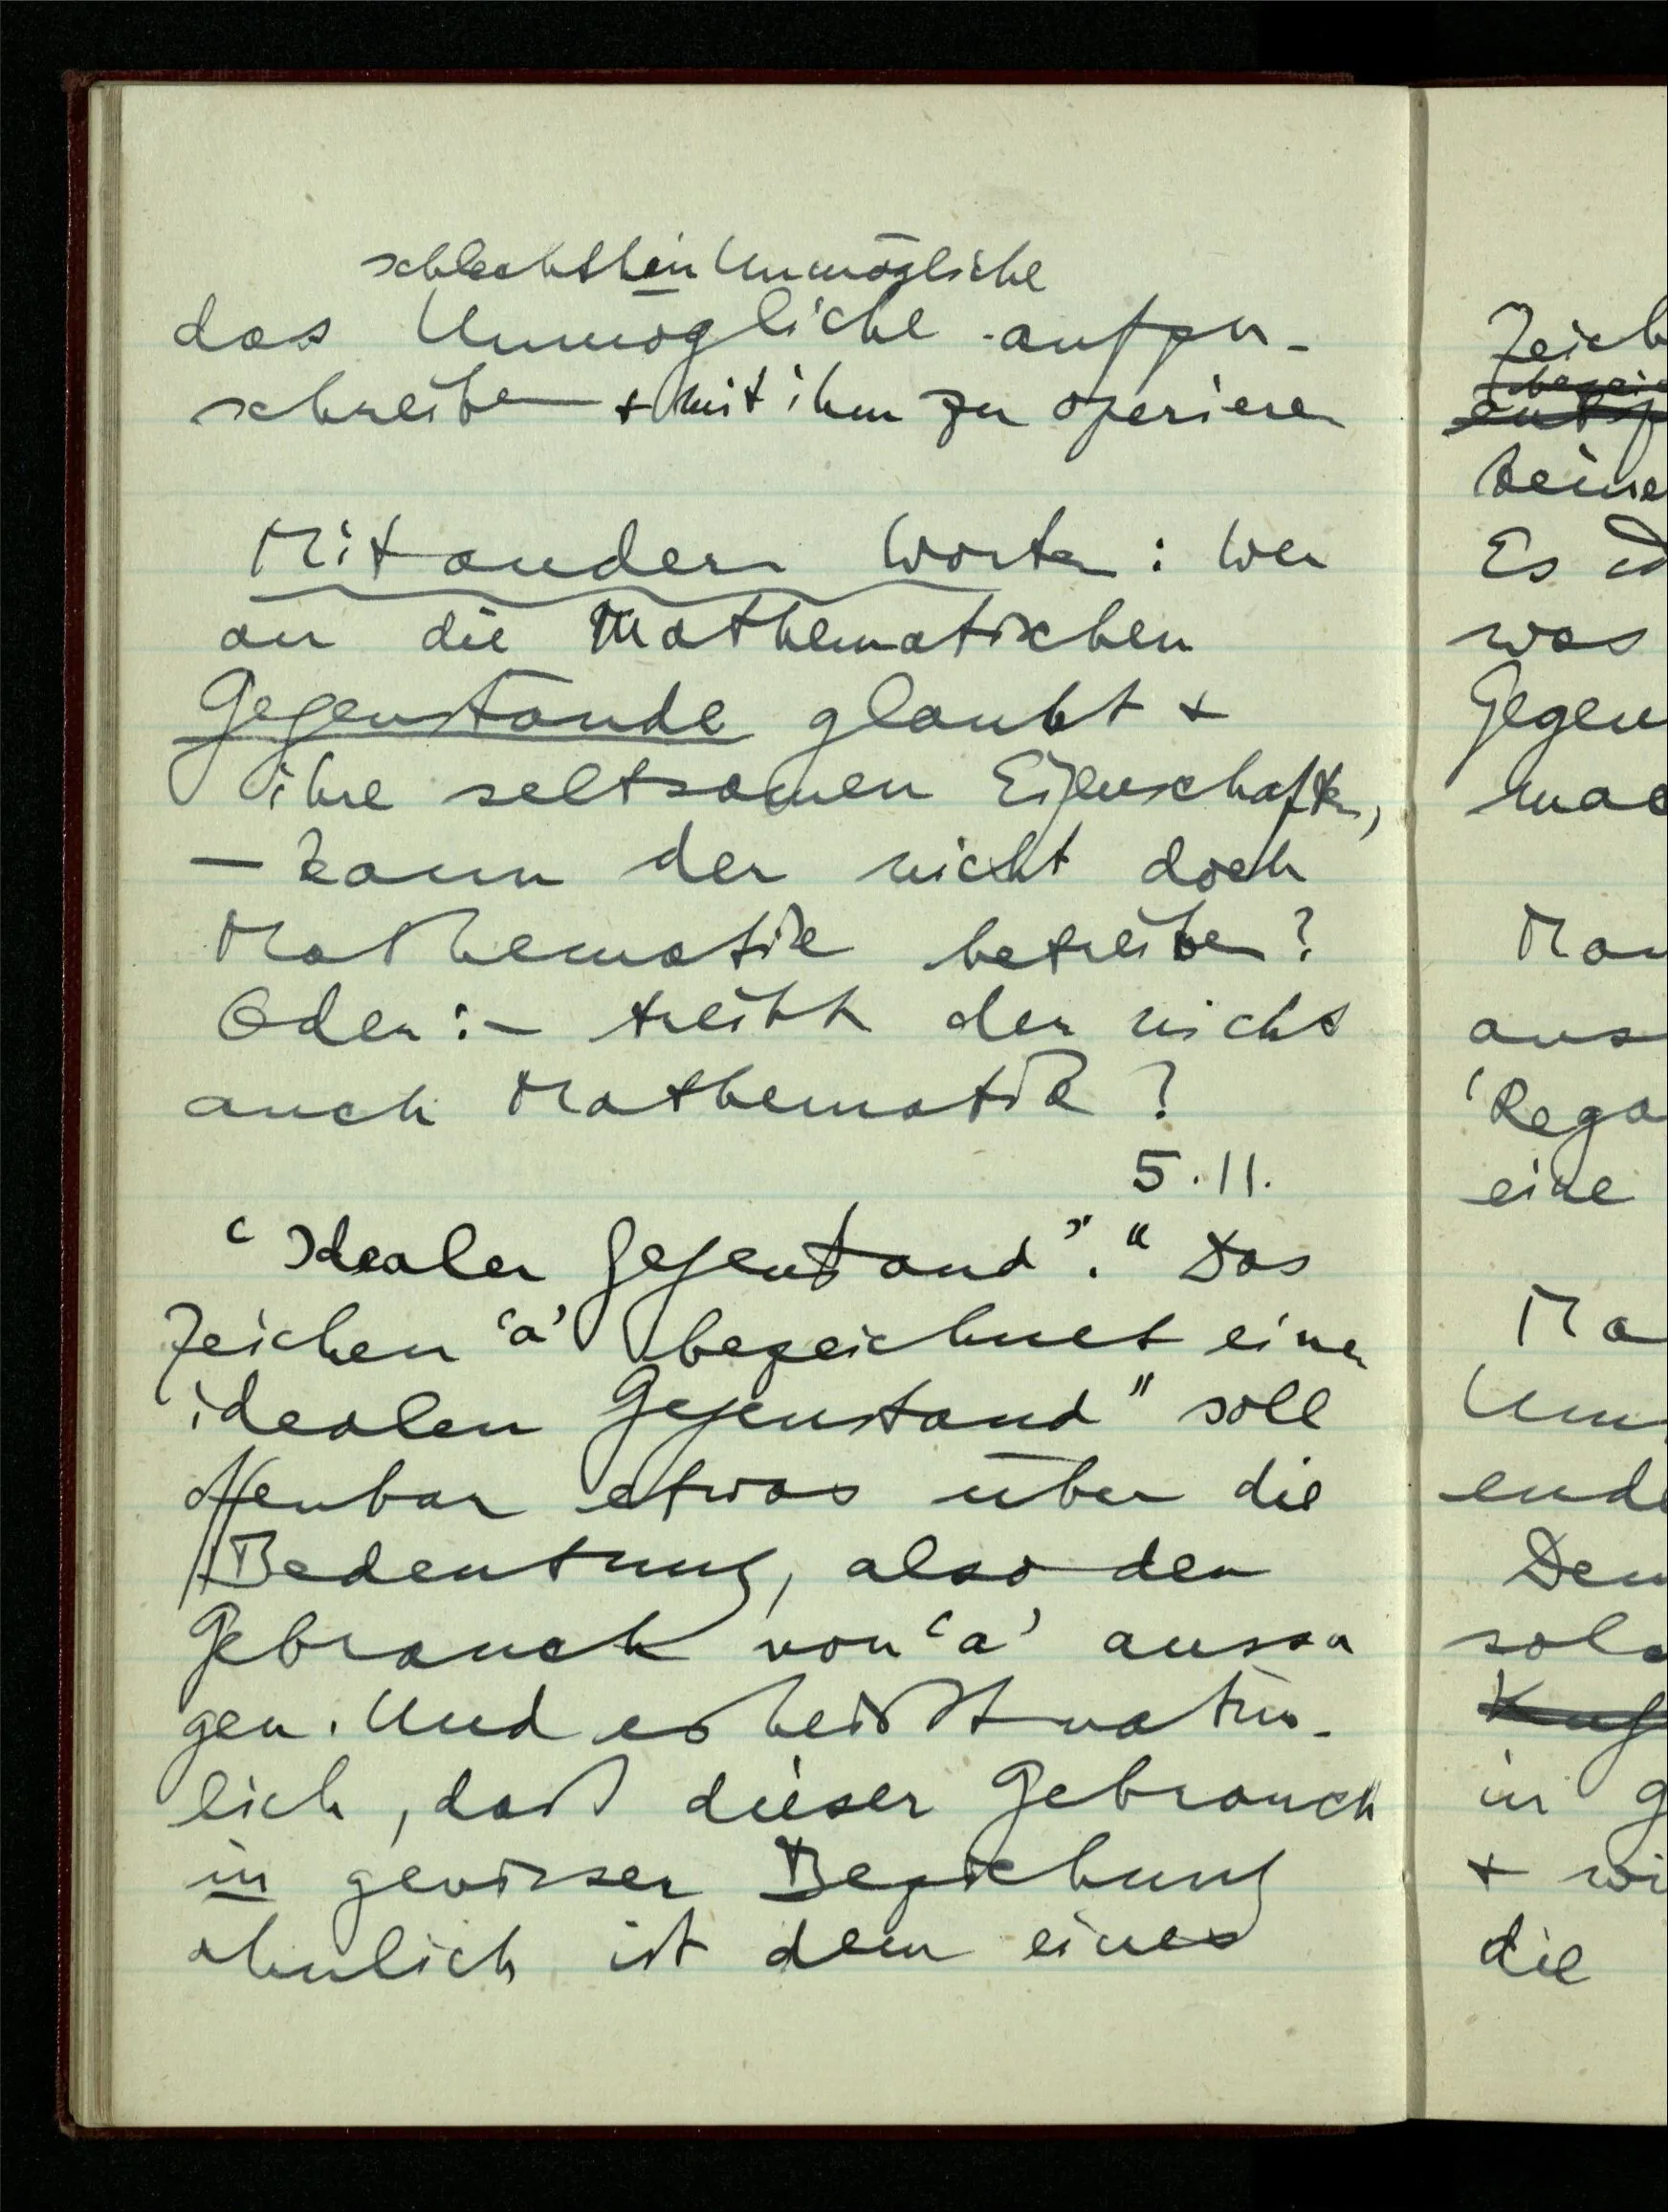 schlechthin Unmögliche
das Unmögliche aufzu-
schreiben + mit ihm zu operieren
Mit andern Worten: Wer
an die Mathematischen
Gegenstände glaubt +
ihre seltsamen Eigenschaften,
— kann der nicht doch
Mathematik betreiben?
Oder: – treibt der nicht
auch Mathematik?
5.11.
‘Idealer Gegenstand’. “Das
Zeichen ‘a’ bezeichnet einen
idealen Gegenstand” soll
offenbar etwas über die
Bedeutung, also den
Gebrauch von ‘a’ aussa
gen. Und es heißt natür-
lich, daß dieser Gebrauch
in gewisser Beziehung
ähnlich ist dem eines
Zeich
keine
Es
was
Gegen
mac
aus
‘Rega
eine
ende
in g
+ wi
die